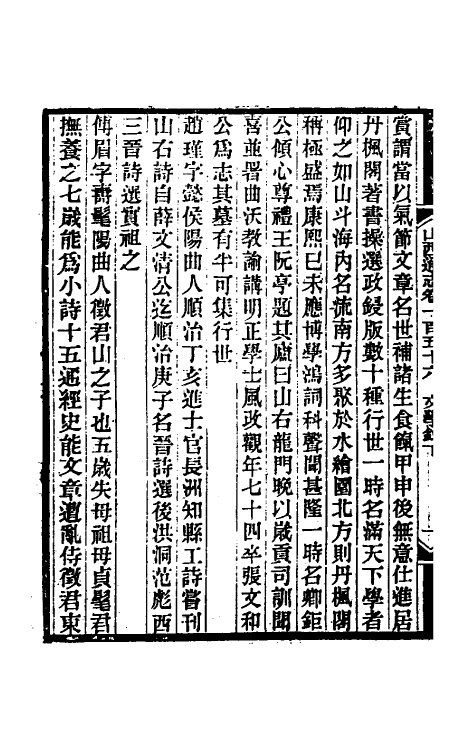 賞謂當以氣節文章名世補諸生食餼甲申後無意仕進居
丹楓閣著書操選政鋟版數十種行世一時名滿天下學者
仰之如山斗海內名流南方多聚於水繪園北方則丹楓閣
稱極盛焉康熙己未應博學鴻詞科聲聞甚隆一時名卿鉅
公傾心尊禮王阮亭題其廬曰山右龍門晚以歲貢司訓聞
喜並署曲沃教諭講明正學士風政觀年七十四卒張文和
公爲志其墓有半可集行世
趙瑾字懿侯陽曲人順治丁亥進士官長洲知縣工詩嘗刊
山右詩自薛文清公迄順治庚子名晉詩選後洪洞范彪西
三晉詩選實祖之
傅眉字壽髦陽曲人徵君山之子也五歲失母祖母貞髦君
撫養之七歲能爲小詩十五通經史能文章遭亂侍徵君東
山西通志卷一百五十六 文學錄下